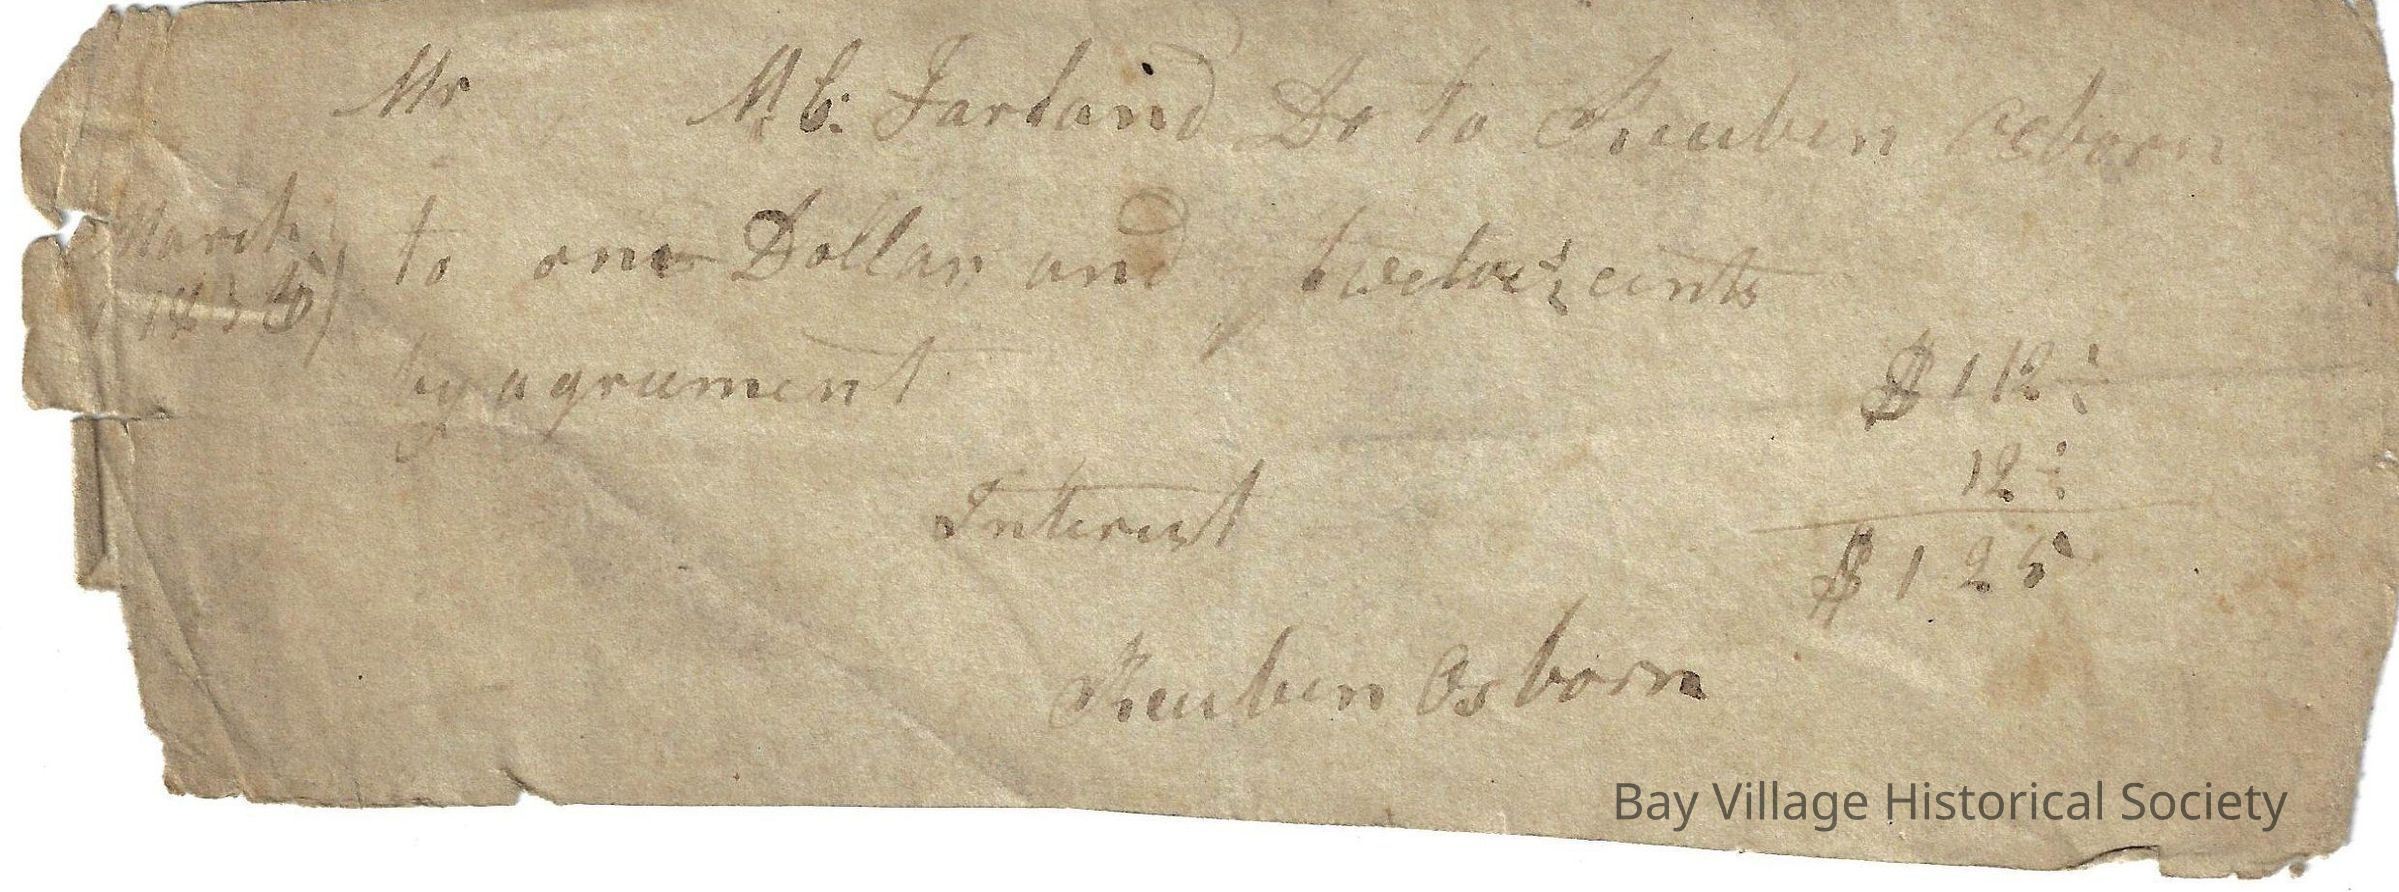 Mr Mc: Farland Dr to Reuben Osborn
March to one Dollar and twelve ½ cents
183
by agreement
$ 1 12 ½
12 ½
Interest
$ 1 25
Reuben Osborn
Bay Village Historical Society